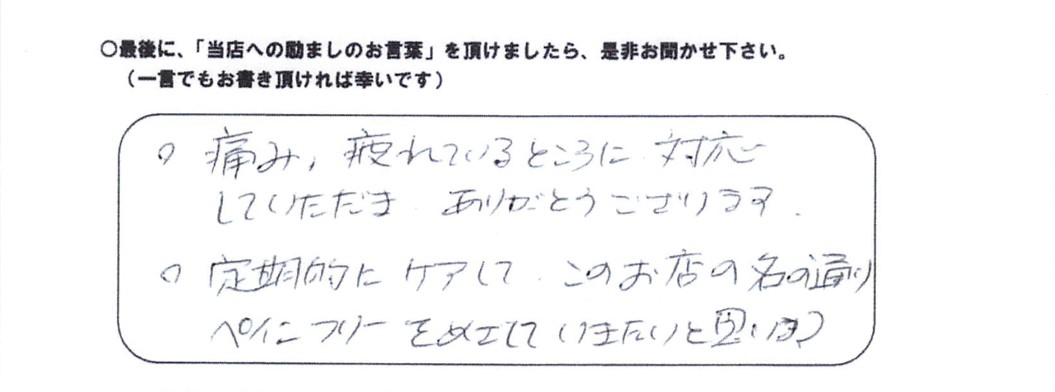 ○最後に、「当店への励ましのお言葉」を頂けましたら、是非お聞かせ下さい。
（一言でもお書き頂ければ幸いです）
○ 痛み，疲れているところに 対応
していただき ありがとうございます．
○ 定期的に ケアして このお店の名の通り
ペインフリーをめざして いきたいと思います